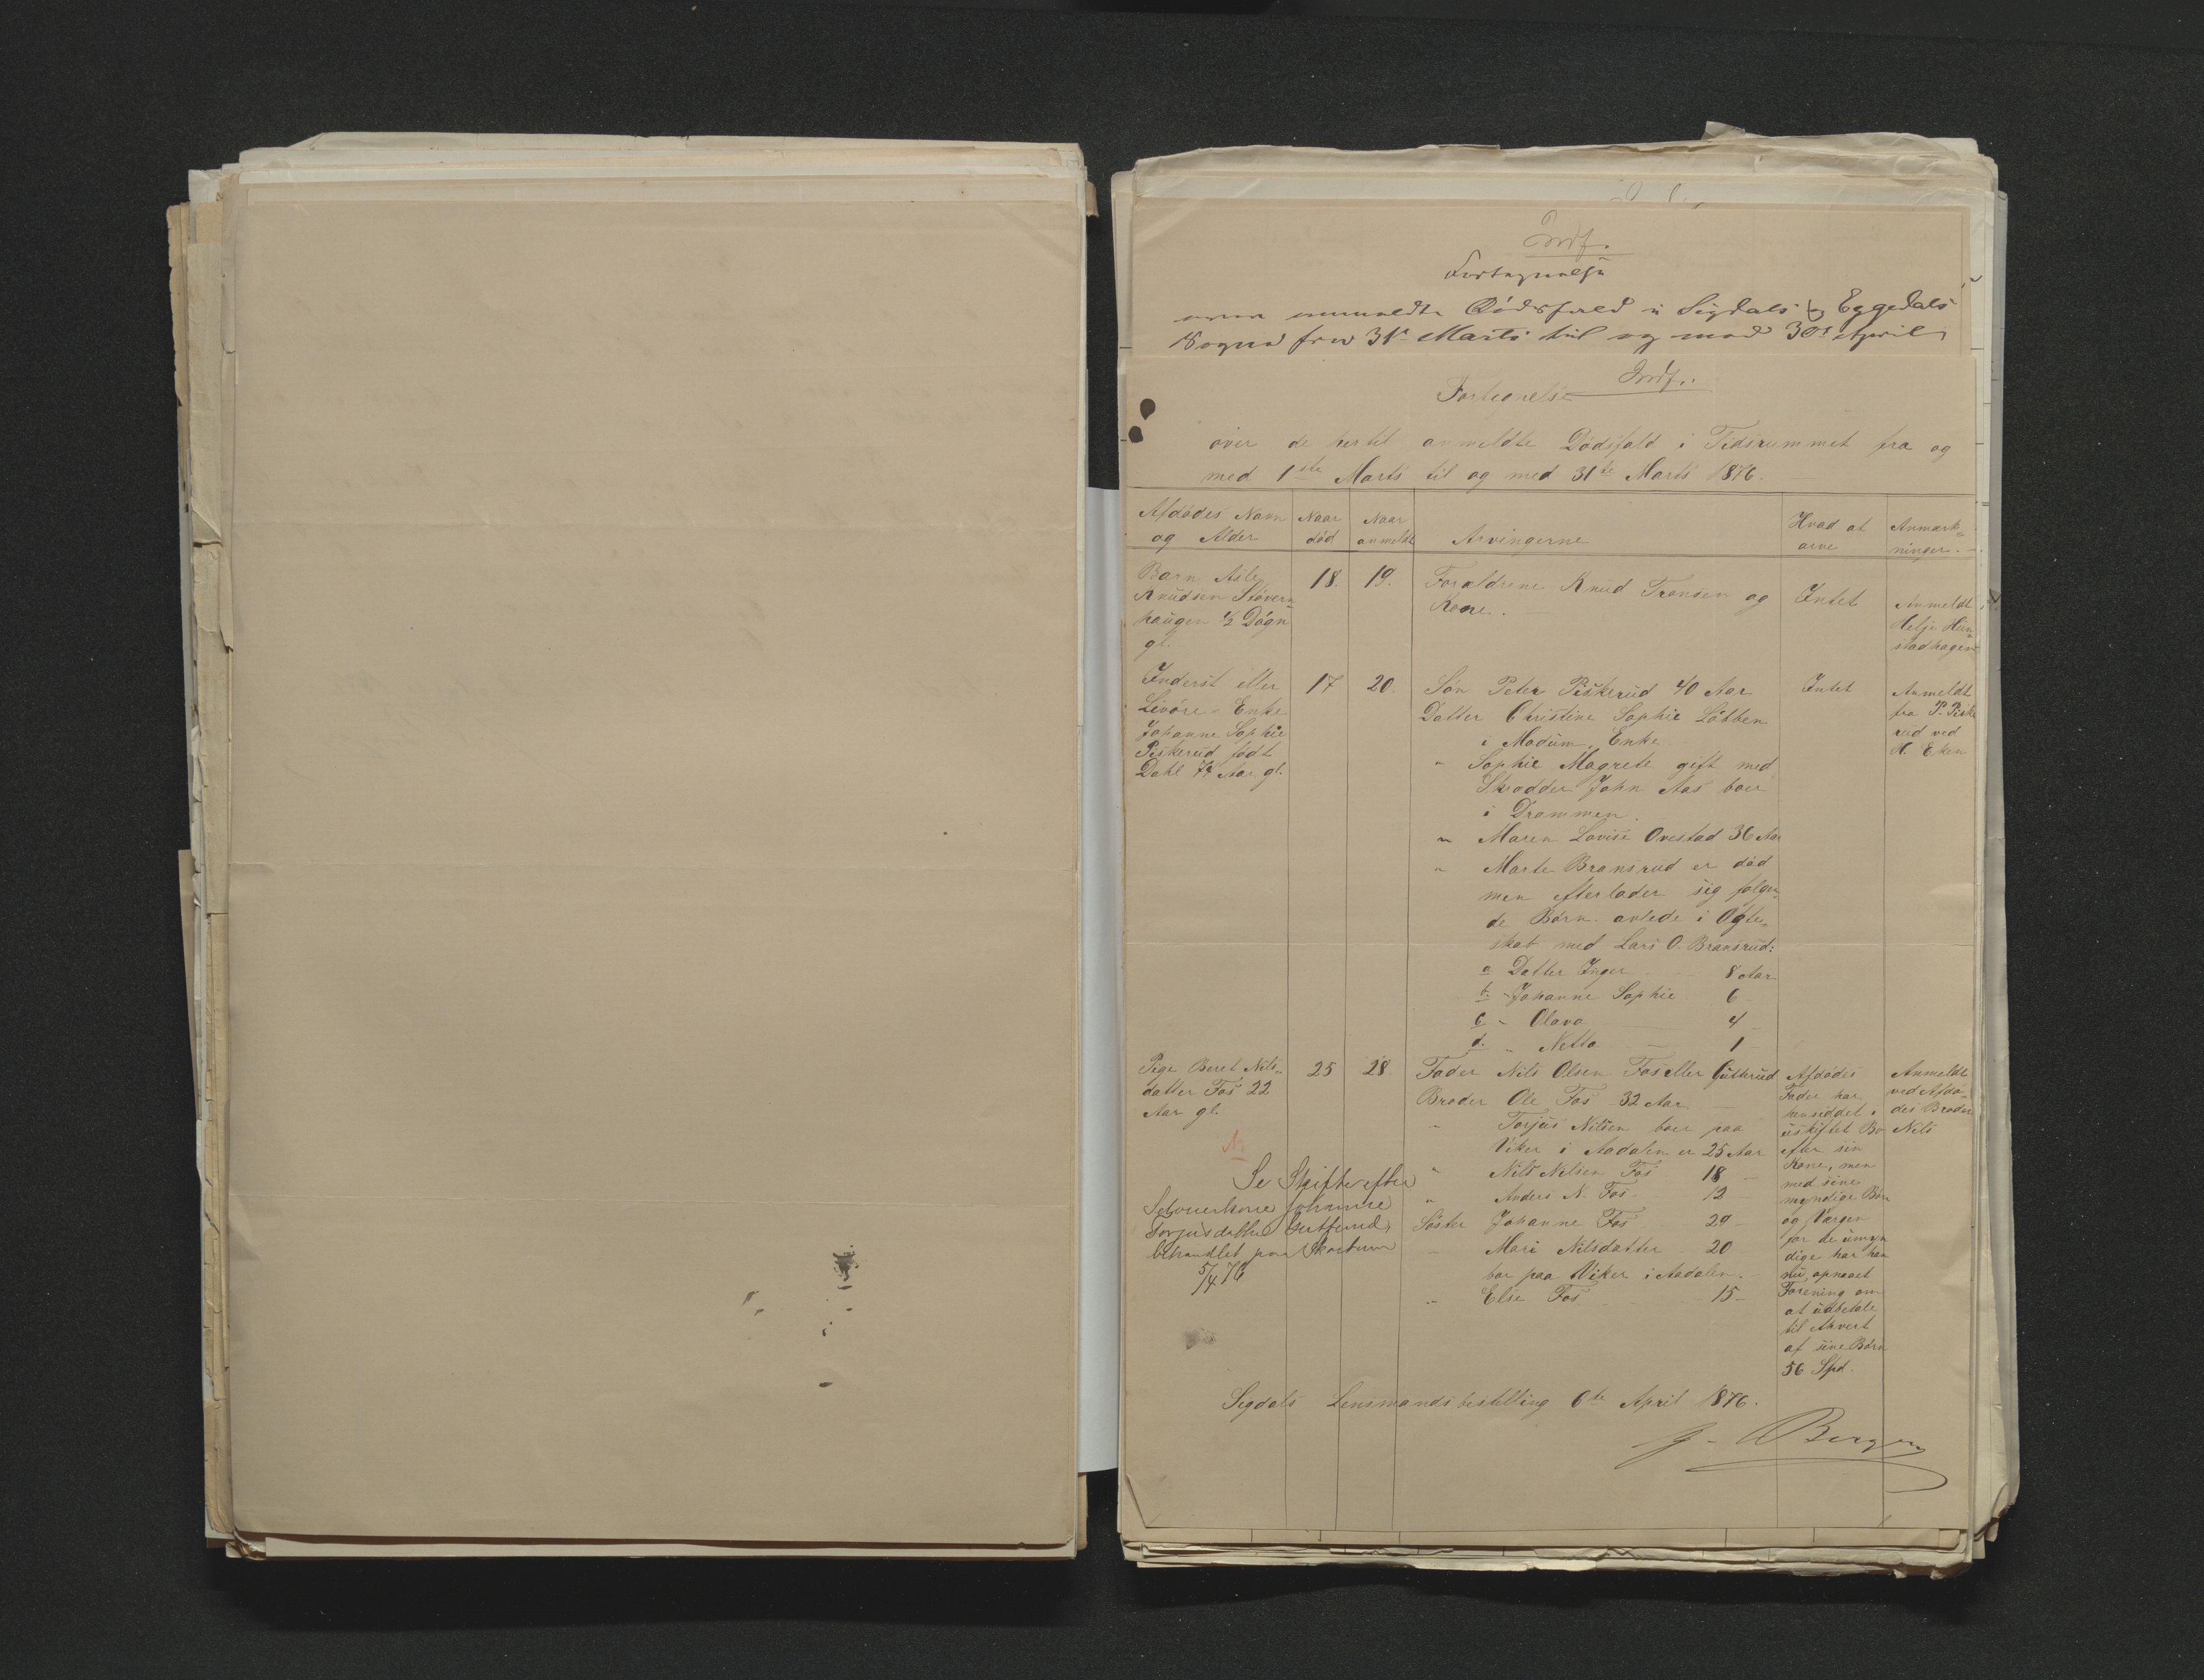 Indf.
Fortegnelse
over anmeldte Dødsfald i Sigdals og Eggedals
Sogne fra 31te Marts til og med 30te April
Indf.
Forteonelse
over de hertil anmeldte Dødsfald i Tidsrummet fra og
med 1ste Marts til og med 31te Marts 1876.
Afdødes Navn og Alder | Naar død | Naar anmeldt | Arvingerne | Hvad at arve | Anmærkninger.
Barn Asle
Knudsen Støvern-
haugen ½ Døgn
gl.
18.
19.
Forældrene Knud Transen og
Kone.
Intet
Anmeldt
Helje Hün-
stadhagen
Inderst eller
Livøre Enke
Johanne Sophie
Piskerud født
Dahl 74 Aar gl.
17
20.
Søn Peter Piskerud 40 Aar
Datter Christine Sophie Løbben
i Modum, Enke
" Sophie Magrete gift med
Skrædder John Aas boer
i Drammen.
" Maren Lovise Ovestad 36 Aar
" Marte Bransrud er død
men efterlader sig følgen-
de Børn avlede i Ægte-
skab med Lars O. Bransrud:
a Datter Inger 8 Aar
b. - Johanne Sophie 6 -
c - Olava 4 -
d. " Netta 1 -
Intet
Anmeldt
fra P. Piske
rud ved
H. Eken
Pige Beret Nils-
datter Fos 22
Aar gl.
25
28.
Fader Nils Olsen Fos eller Gutterud
Broder Ole Fos 32 Aar
" Torjus Nilsen boer paa
Viker i Aadalen er 25 Aar
" Nils Nilsen Fos 18 -
" Anders N. Fos 12 -
Søster Johanne Fos 29 -
- Mari Nilsdatter 20
bor paa Viker i Aadalen.
" Else Fos 15 -
Afdødes
Fader har
hensiddet i
uskiftet Bo
efter sin
Kone, men
med sine
myndige Børn
og Værgen
for de umyn
dige har han
nu opnaaet
Forening om
at udbetale
til Ahvert
af sine Børn
56 Spd.
Anmeldt
ved Afdø-
des Broder
Nils
Se Skifte efter
Selveierkone Johanne
Torjusdatter Gutterud,
behandlet paa Skartum
5/4 76
Sigdals Lensmandsbestilling 6te April 1876.
Bergan